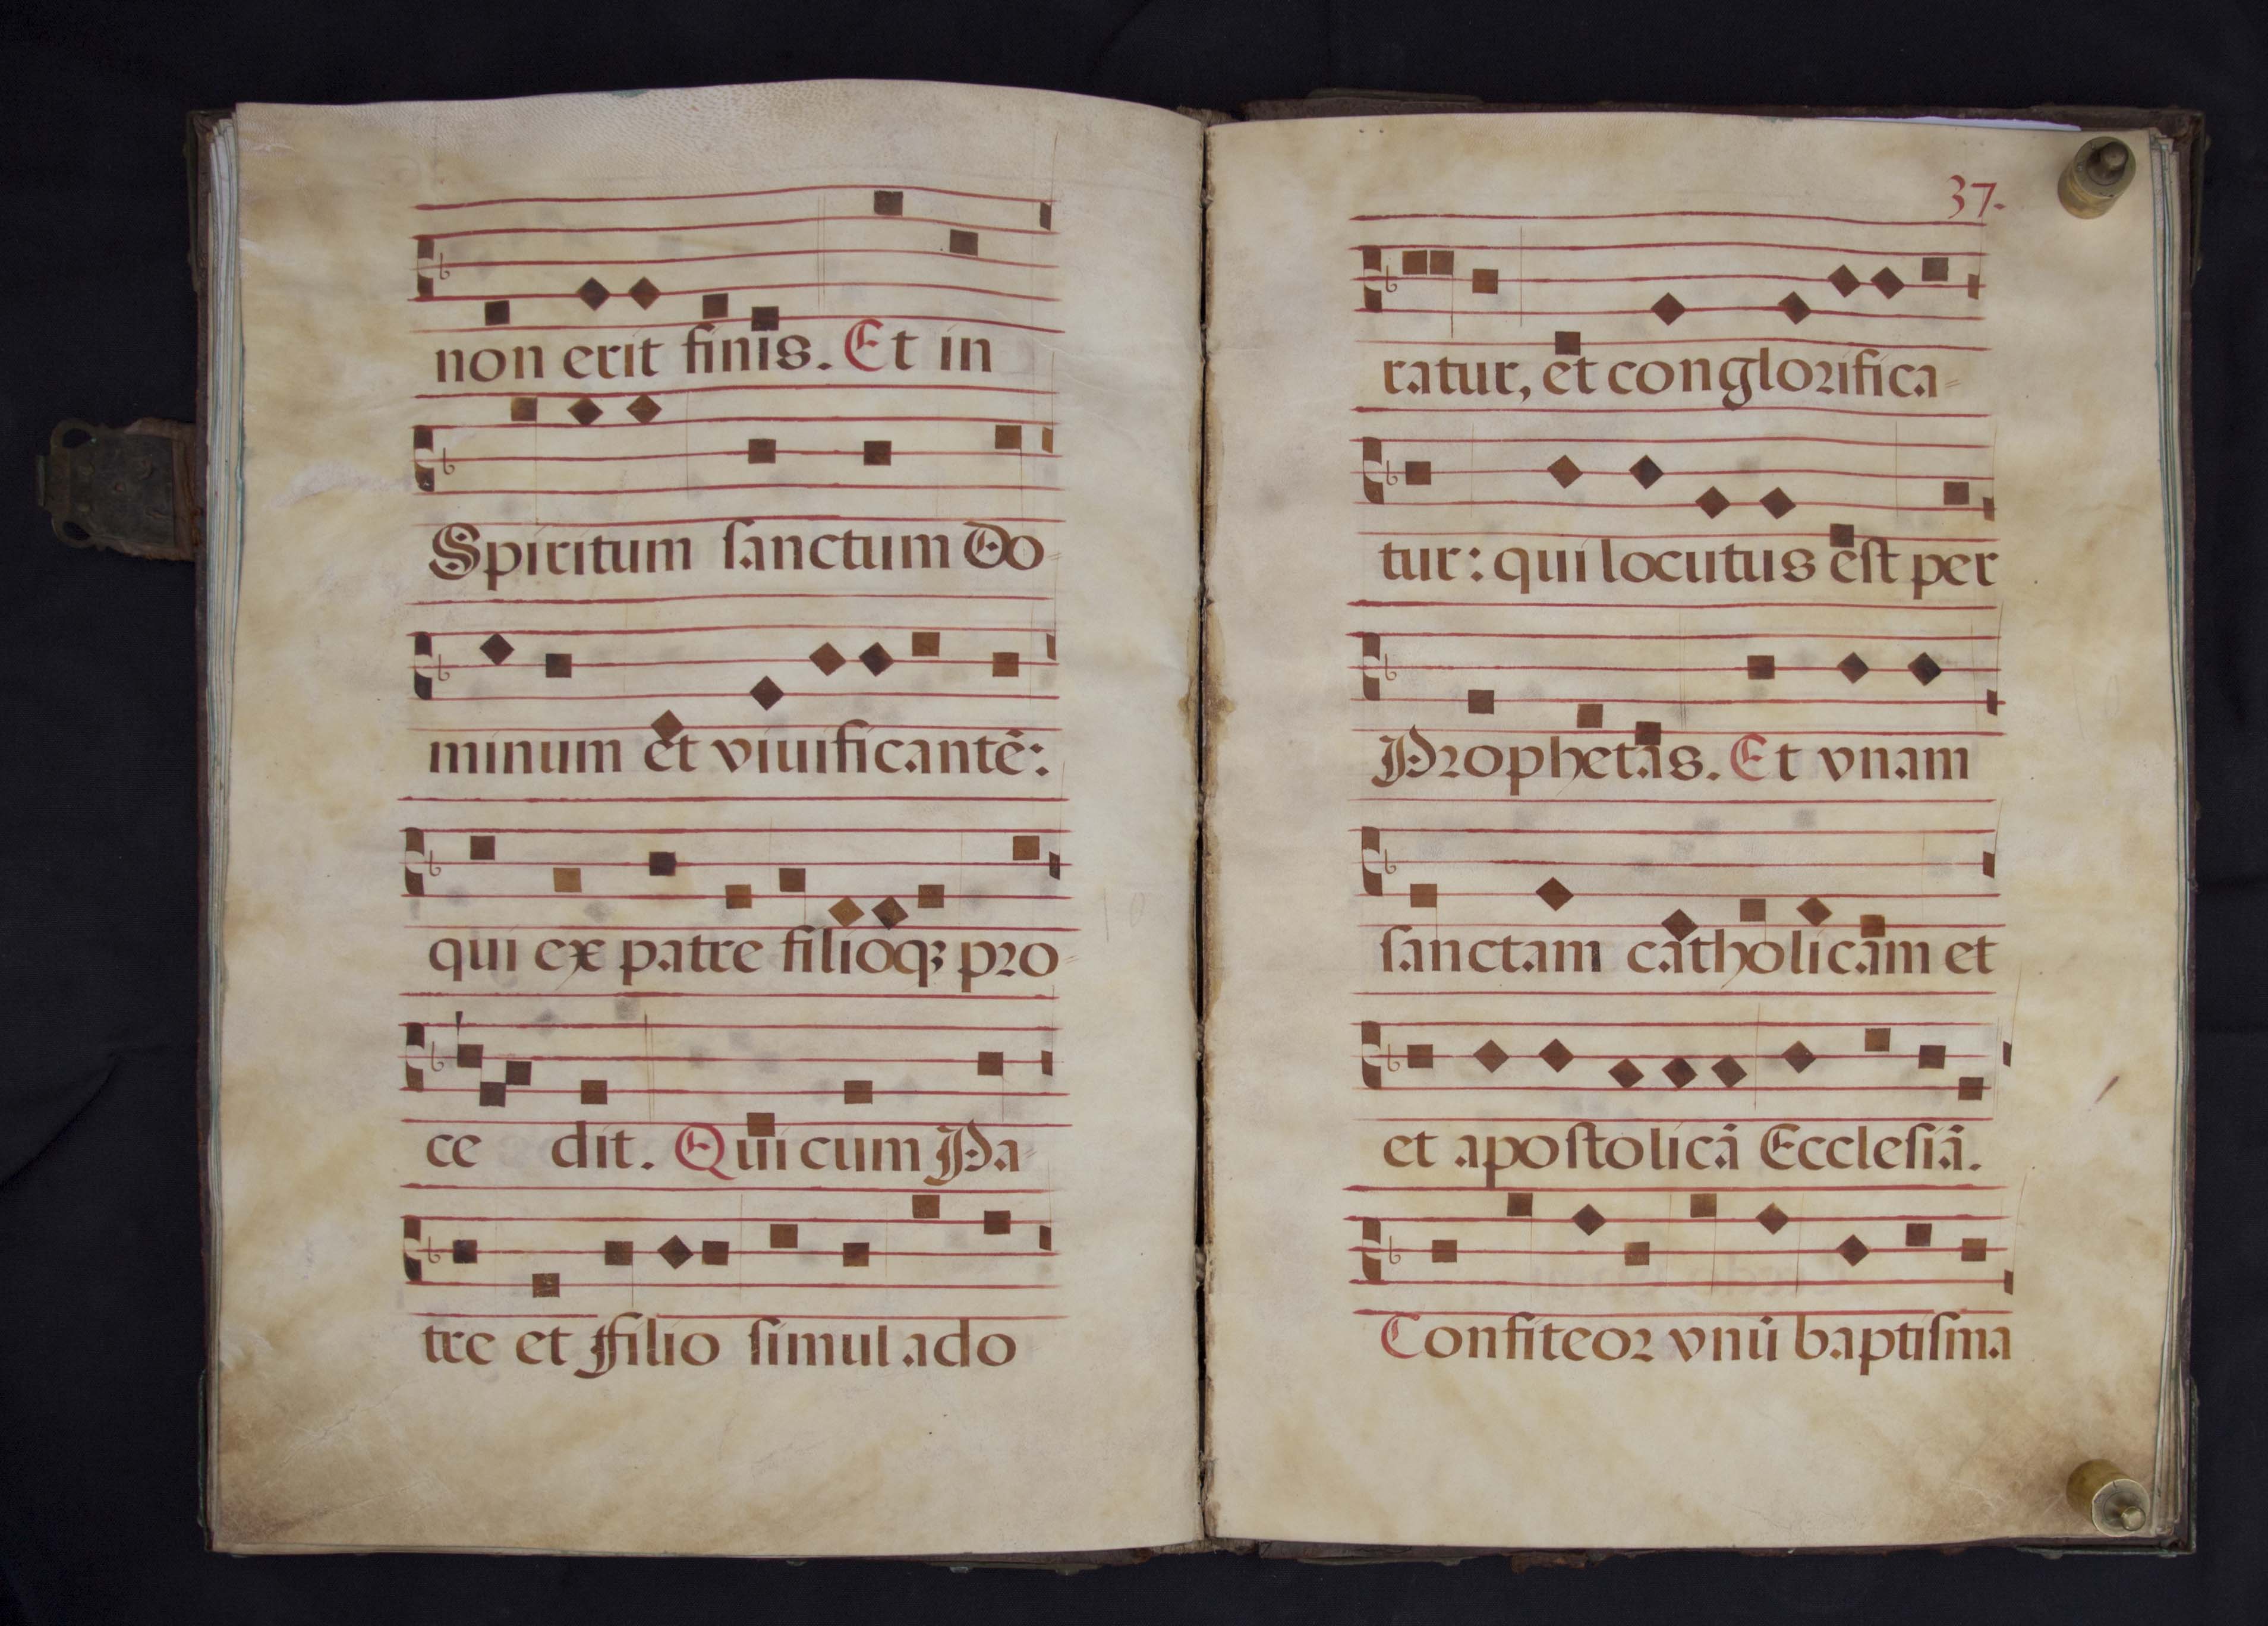 non erit finis. Et in
Spiritum ſanctum Do=
minum et viuificantē:
qui ex patre filioqꝫ pro=
ce dit. Qui cum Pa=
tre et Filio ſimul ado
37.
ratur, et conglorifica=
tur: qui locutus eſt per
Prophetas. Et vnam
ſanctam catholicam et
et apoſtolicā Eccleſiā.
Confiteor vnū baptiſma